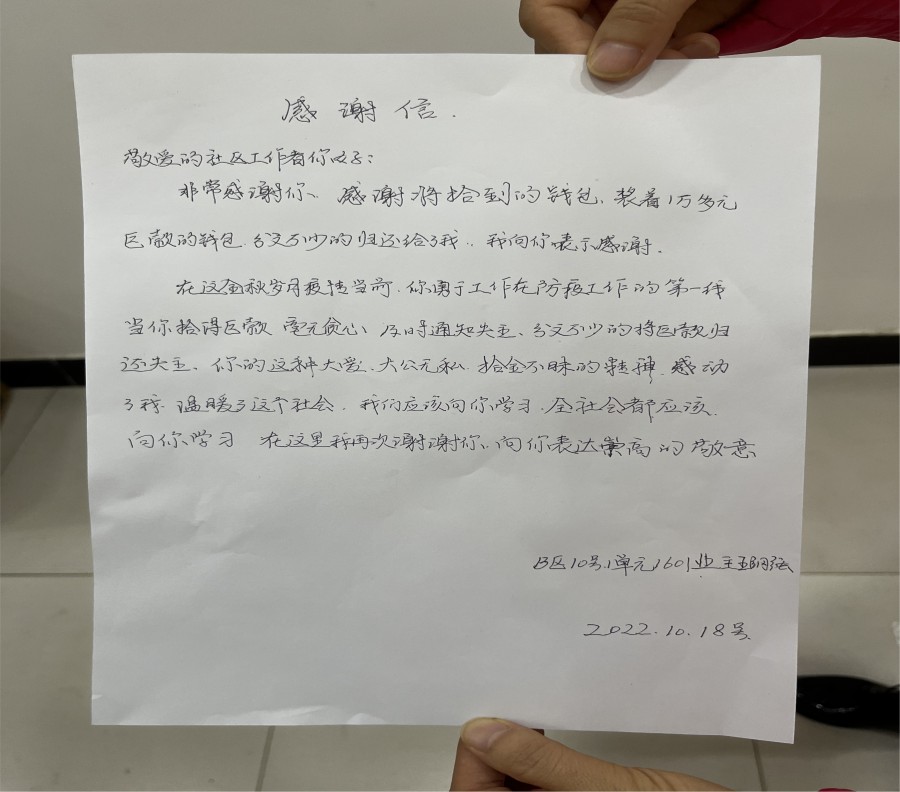 感谢信.
敬爱的社区工作者你好:
非常感谢你、感谢将拾到的钱包、装着1万多元
巨款的钱包、分文不少的归还给了我、我向你表示感谢.
在这金秋岁月疫情当前、你勇于工作在防疫工作的第一线
当你拾得巨款 毫无贪心 及时通知失主、分文不少的将巨款归
还失主、你的这种大爱、大公无私、拾金不昧的精神、感动
了我、温暖了这个社会、我们应该向你学习、全社会都应该、
向你学习 在这里我再次谢谢你、向你表达崇高的敬意
B区10号1单元1601业主
2022.10.18号.